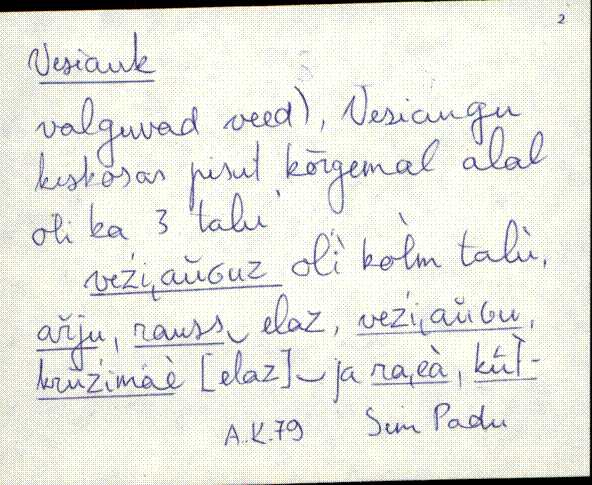 2
Vesiauk
valguvad veed), Vesiaugu
keskosas pisut kõrgemal alal
oli ka 3 talu
veźi‿aŭGuz oĺì kòlm talù,
aŕju, rauss‿ elaz, veźi‿aŭGu,
kruźimäè [elaz]‿ ja
A.K.79